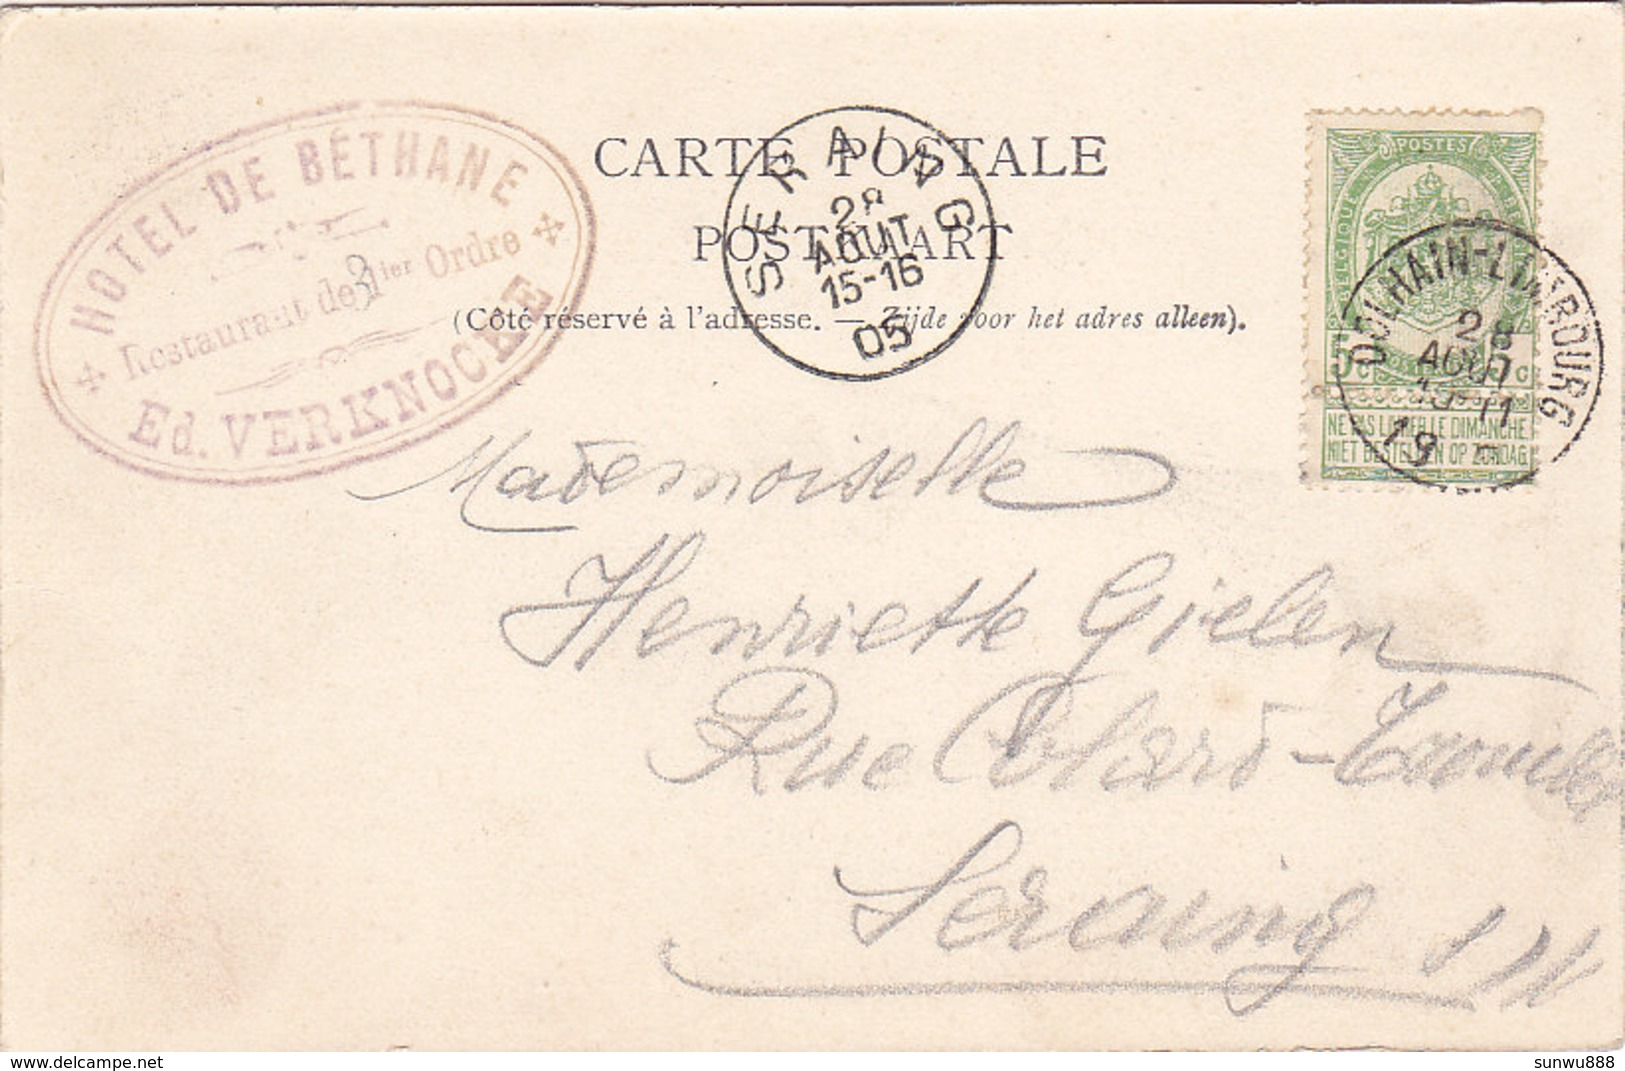 HOTEL DE BÉTHANE
Restaurant de 3 1ier Ordre
Ed. VERKNOCKE
CARTE POSTALE
POSTKAART
(Côté réservé à l'adresse. — Zijde voor het adres alleen).
SERAING
28
AOUT
15-16
05
POSTES
BELGIQUE
5 c 5 c
NE PAS LIVRER LE DIMANCHE
NIET BESTELLEN OP ZONDAG
DOLHAIN-LIMBOURG
28
AOUT
10-11
19
Mademoiselle
Henriette Gielen
Rue Colard-
Seraing
delcampe.net
sunwu888